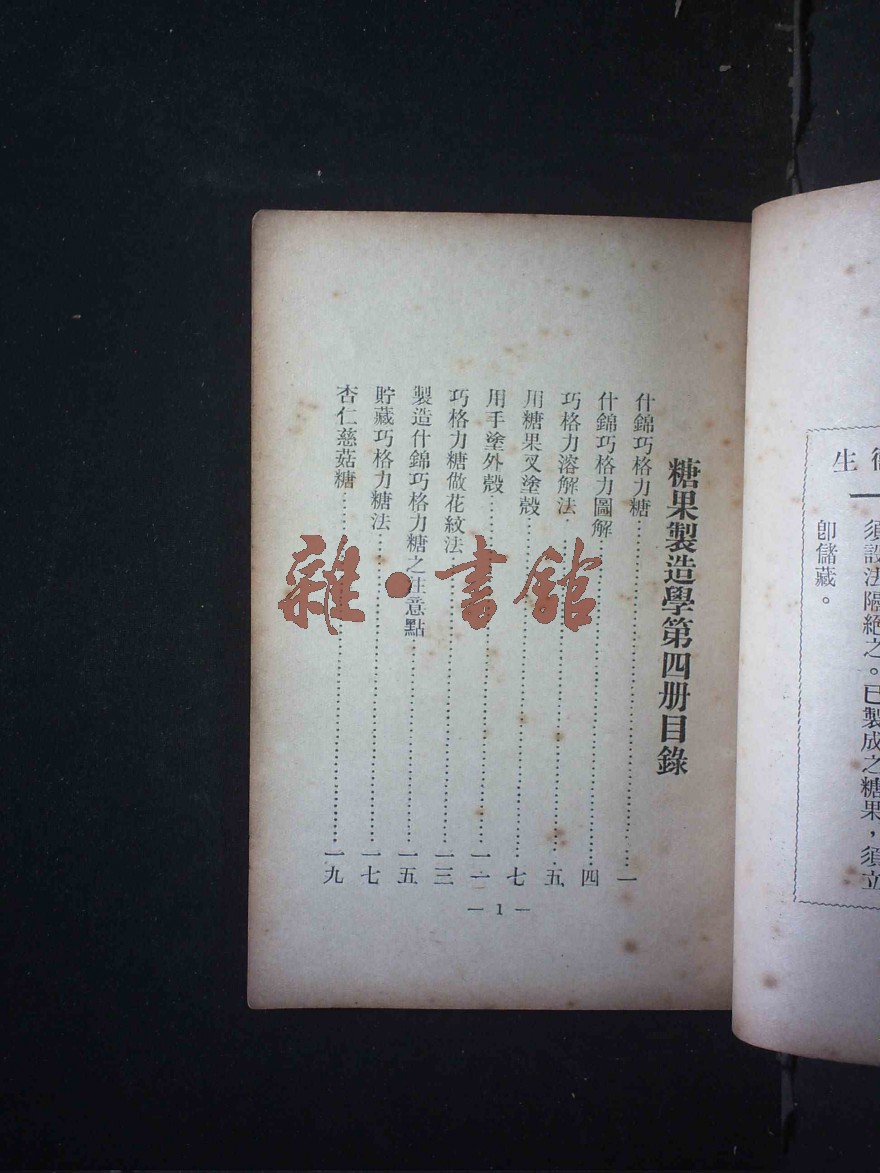 生
須設法隔絕之。已製成之糖果，須立
卽儲藏。
糖果製造學第四册目錄
什錦巧格力糖……一
什錦巧格力圖解……四
巧格力溶解法……五
用糖果叉塗殼……七
用手塗外殼……一一
巧格力糖做花紋法……一三
製造什錦巧格力糖之注意點……一五
貯藏巧格力糖法……一七
杏仁慈菇糖……一九
— 1 —
雜·書館